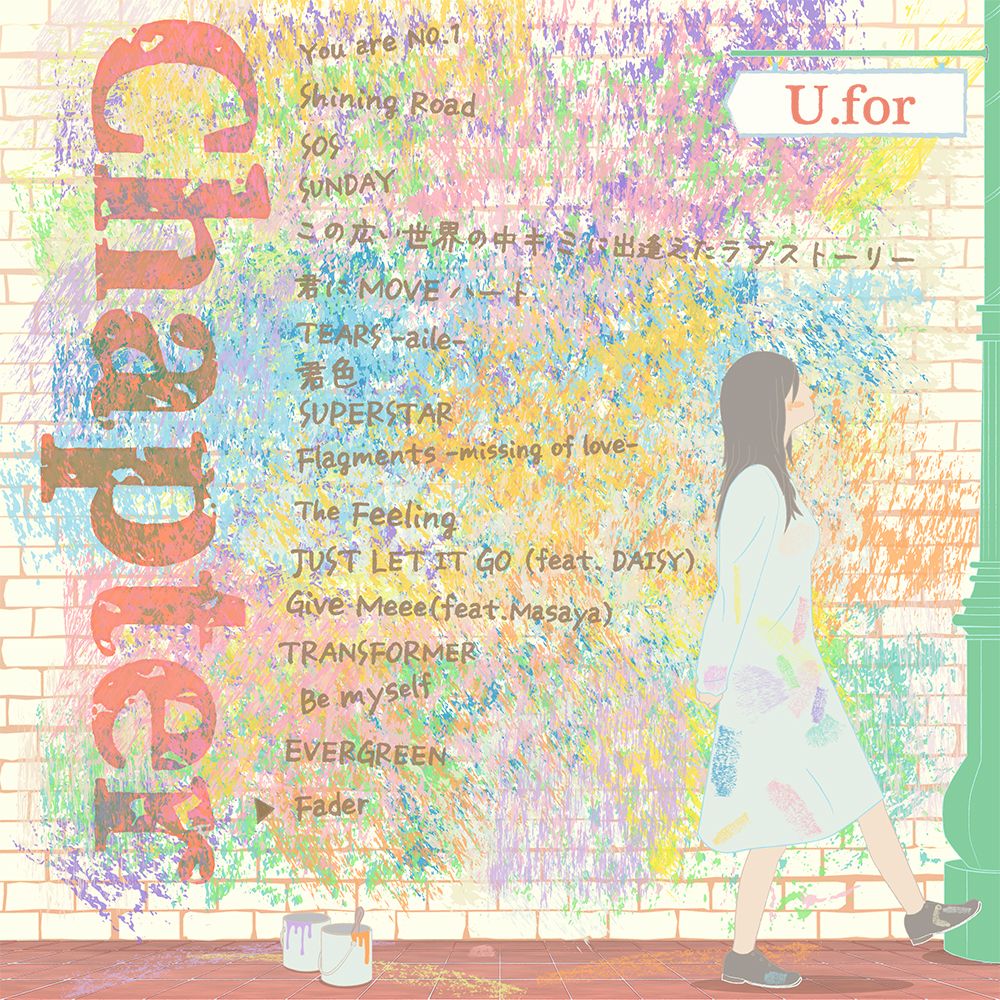 Chapter
U.for
You are No.1
Shining Road
SOS
SUNDAY
この広い世界の中キミに出逢えたラブストーリー
君に MOVE ハート
TEARS -aile-
君色
SUPERSTAR
Flagments -missing of love-
The Feeling
JUST LET IT GO (feat. DAISY)
Give Meee(feat.Masaya)
TRANSFORMER
Be myself
EVERGREEN
Fader